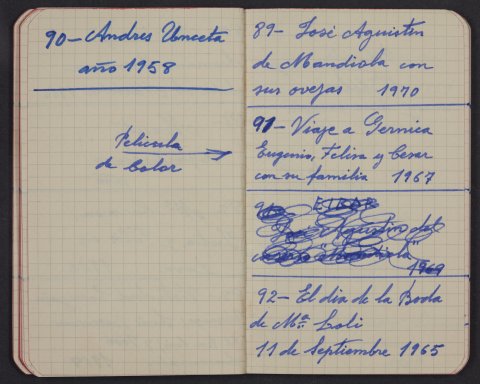 90- Andres Unceta
año 1958
Pelicula
de Color
89- José Agustin
de Mandiola con
sus ovejas 1970
91- Viaje a Gernica
Eugenio, Felisa y Cesar
con su familia 1967
EIBAR
José Agustin del
caserio "Mandiola"
1969
92- El dia de la Boda
de Mª Loli
11 de Septiembre 1965